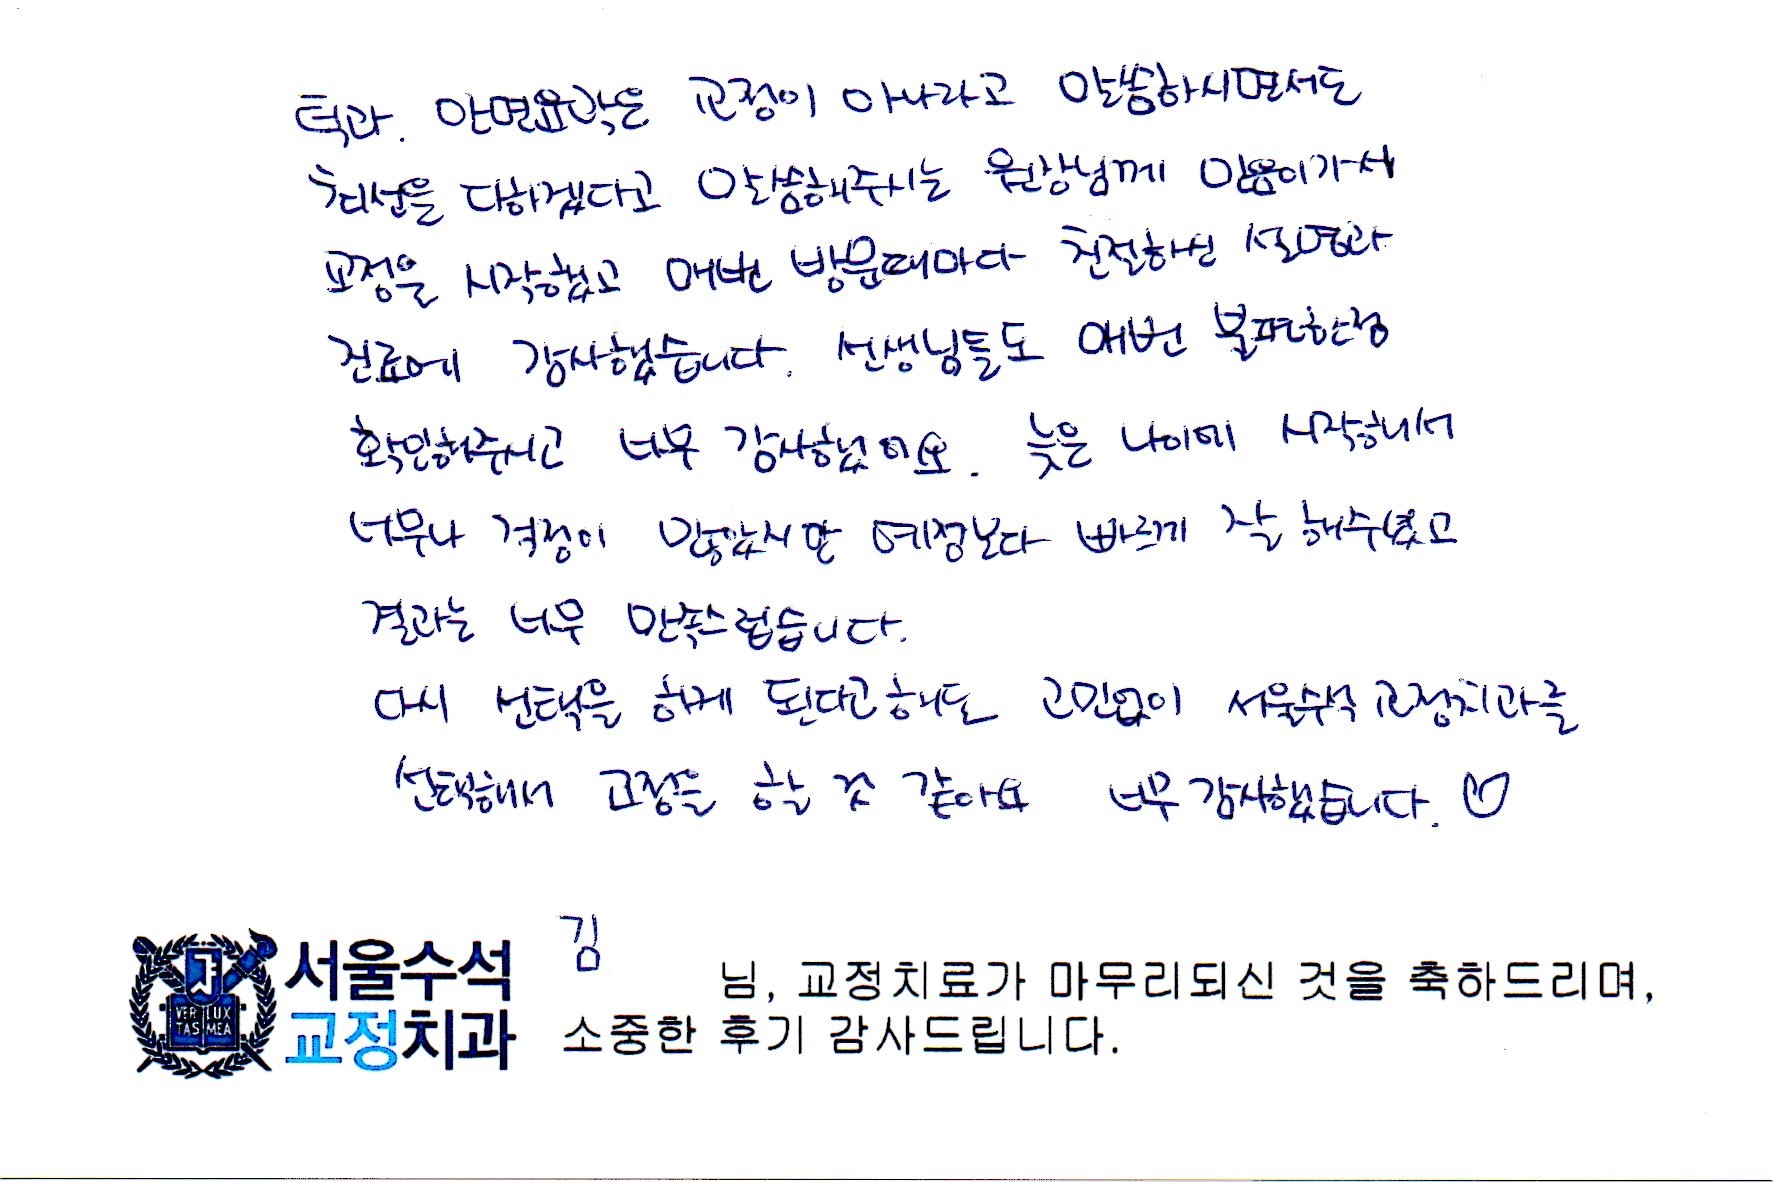 턱과. 안면윤곽은 교정이 아니라고 말씀하시면서도
최선을 다하겠다고 말씀해주시는 원장님께 믿음이가서
교정을 시작했고 매번 방문때마다 친절하신 설명과
진료에 감사했습니다. 선생님들도 매번 불편한점
확인해주시고 너무 감사했어요. 늦은 나이에 시작해서
너무나 걱정이 많았지만 예정보다 빠르게 잘 해주셨고
결과는 너무 만족스럽습니다.
다시 선택을 하게 된다고해도 고민없이 서울수석교정치과를
선택해서 교정을 할 것 같아요 너무 감사했습니다. ♡
김
서울수석
교정치과
VERI LUX
TAS MEA
님, 교정치료가 마무리되신 것을 축하드리며,
소중한 후기 감사드립니다.